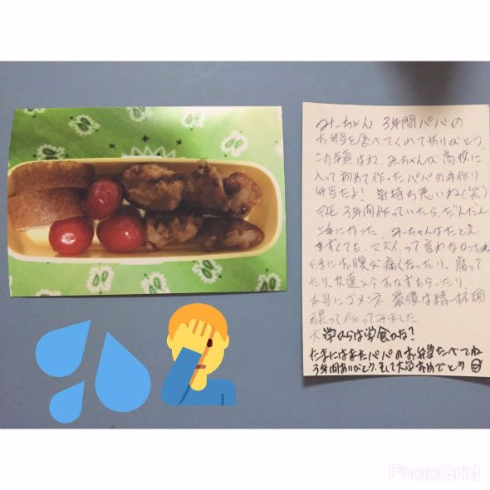 みーちゃん 3年間パパの
お弁当を食べてくれてありがとう。
この写真はね、みーちゃんが高校に
入って初めて作ったパパの手作り
弁当だよ! 気持ち悪いね(笑)
3年間作っていたら、だんだん
上手に作った みーちゃんはたとえ
まずくても、マズイって言わなかったね
たまにお腹が痛くなったり、腐って
たり、友達からおかずもらったり、
本当にゴメンネ
張って作ってみました
大学からは学食かな?
たまにはまたパパのお弁当たべてね
3年間ありがとう、そして大学おめでとう
PhotoGrid